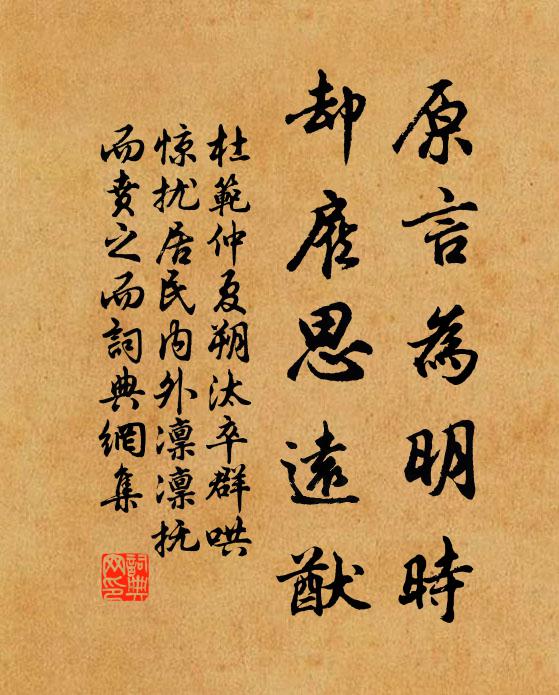 原言為明時
却廑思遠猷
杜範仲夏朔汰卒群哄
惊扰居民内外凛凛抚
而贲之而詞典網集
詞典網印